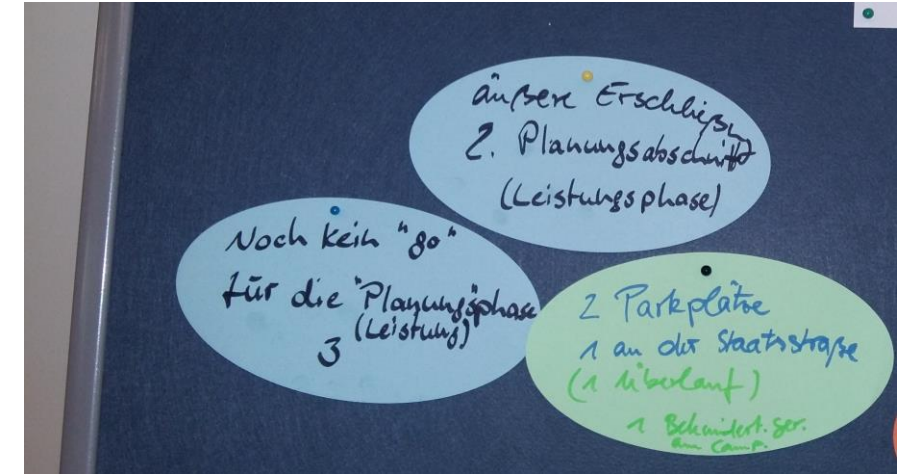 äußere Erschließung
2. Planungsabschnitt
(Leistungsphase)
Noch kein "go"
für die "Planungsphase
(Leistung)
3
2 Parkplätze
1 an der Staatsstraße
(1 Überlauf)
1 Behindert.ger.
am Camp.